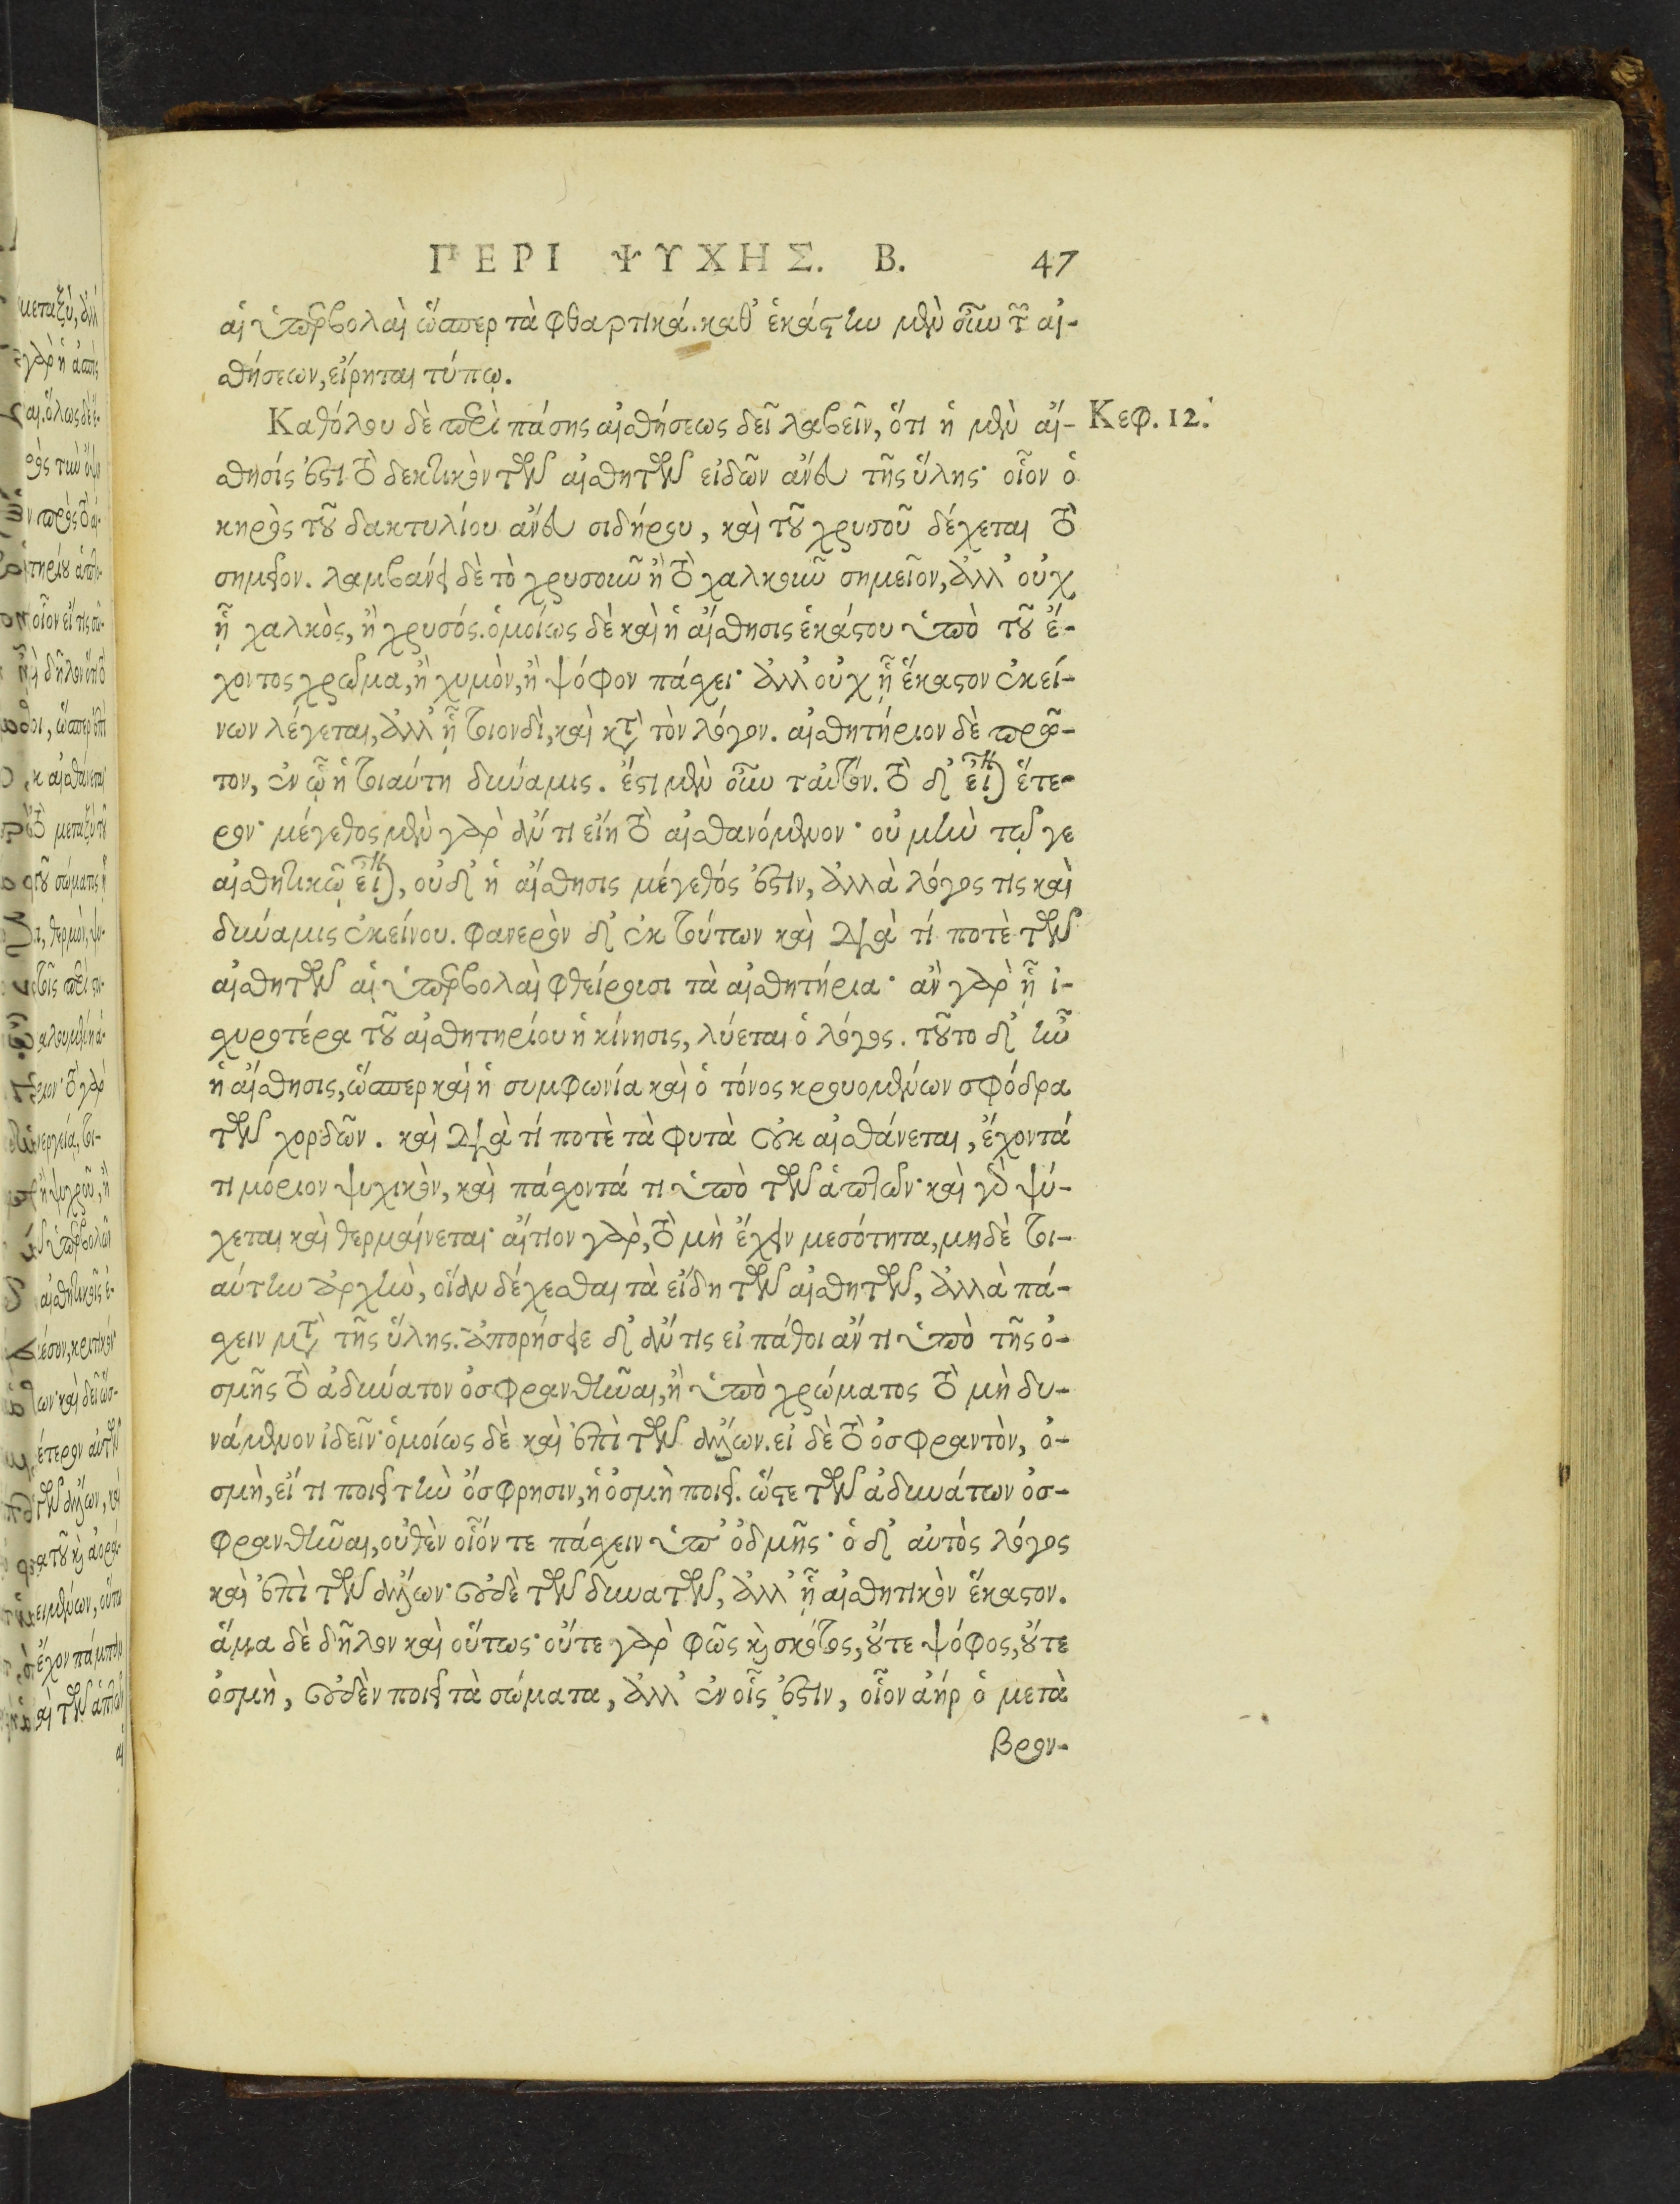 ΠΕΡΙ ΨΥΧΗΣ. Β. 47
αἱ ὑπερβολαὶ ὥσπερ τὰ φθαρτικά. καθ' ἑκάστην μὲν οὖν τῶν αἰ-
σθήσεων, εἴρηται τύπῳ.
Καθόλου δὲ περὶ πάσης αἰσθήσεως δεῖ λαβεῖν, ὅτι ἡ μὲν αἴ- Κεφ. 12.
σθησίς ἐστι τὸ δεκτικὸν τῶν αἰσθητῶν εἰδῶν ἄνευ τῆς ὕλης· οἷον ὁ
κηρὸς τοῦ δακτυλίου ἄνευ σιδήρου, καὶ τοῦ χρυσοῦ δέχεται τὸ
σημεῖον. λαμβάνει δὲ τὸ χρυσοῦν ἢ τὸ χαλκοῦν σημεῖον, ἀλλ' οὐχ
ᾗ χαλκὸς, ἢ χρυσός. ὁμοίως δὲ καὶ ἡ αἴσθησις ἑκάστου ὑπὸ τοῦ ἔ-
χοντος χρῶμα, ἢ χυμὸν, ἢ ψόφον πάσχει· ἀλλ' οὐχ ᾗ ἕκαστον ἐκεί-
νων λέγεται, ἀλλ' ᾗ τοιονδὶ, καὶ κατὰ τὸν λόγον. αἰσθητήριον δὲ πρῶ-
τον, ἐν ᾧ ἡ τοιαύτη δύναμις. ἔστι μὲν οὖν ταὐτόν. τὸ δ' εἶναι ἕτε-
ρον· μέγεθος μὲν γὰρ ἄν τι εἴη τὸ αἰσθανόμενον· οὐ μὴν τῷ γε
αἰσθητικῷ εἶναι, οὐδ' ἡ αἴσθησις μέγεθός ἐστιν, ἀλλὰ λόγος τις καὶ
δύναμις ἐκείνου. φανερὸν δ' ἐκ τούτων καὶ διὰ τί ποτὲ τῶν
αἰσθητῶν αἱ ὑπερβολαὶ φθείρουσι τὰ αἰσθητήρια· ἂν γὰρ ᾖ ἰ-
σχυροτέρα τοῦ αἰσθητηρίου ἡ κίνησις, λύεται ὁ λόγος. τοῦτο δ' ἦν
ἡ αἴσθησις, ὥσπερ καὶ ἡ συμφωνία καὶ ὁ τόνος κρουομένων σφόδρα
τῶν χορδῶν. καὶ διὰ τί ποτὲ τὰ φυτὰ οὐκ αἰσθάνεται, ἔχοντά
τι μόριον ψυχικὸν, καὶ πάσχοντά τι ὑπὸ τῶν ἁπτῶν· καὶ γὰρ ψύ-
χεται καὶ θερμαίνεται· αἴτιον γὰρ, τὸ μὴ ἔχειν μεσότητα, μηδὲ τοι-
αύτην ἀρχὴν, οἵαν δέχεσθαι τὰ εἴδη τῶν αἰσθητῶν, ἀλλὰ πά-
σχειν μετὰ τῆς ὕλης. ἀπορήσειε δ' ἄν τις εἰ πάθοι ἄν τι ὑπὸ τῆς ὀ-
σμῆς τὸ ἀδύνατον ὀσφρανθῆναι, ἢ ὑπὸ χρώματος τὸ μὴ δυ-
νάμενον ἰδεῖν· ὁμοίως δὲ καὶ ἐπὶ τῶν ἄλλων. εἰ δὲ τὸ ὀσφραντὸν, ὀ-
σμὴ, εἴ τι ποιεῖ τὴν ὄσφρησιν, ἡ ὀσμὴ ποιεῖ. ὥστε τῶν ἀδυνάτων ὀσ-
φρανθῆναι, οὐθὲν οἷόν τε πάσχειν ὑπ' ὀδμῆς· ὁ δ' αὐτὸς λόγος
καὶ ἐπὶ τῶν ἄλλων· οὐδὲ τῶν δυνατῶν, ἀλλ' ᾗ αἰσθητικὸν ἕκαστον.
ἅμα δὲ δῆλον καὶ οὕτως· οὔτε γὰρ φῶς καὶ σκότος, οὔτε ψόφος, οὔτε
ὀσμὴ, οὐδὲν ποιεῖ τὰ σώματα, ἀλλ' ἐν οἷς ἐστιν, οἷον ἀήρ ὁ μετὰ
βρον-